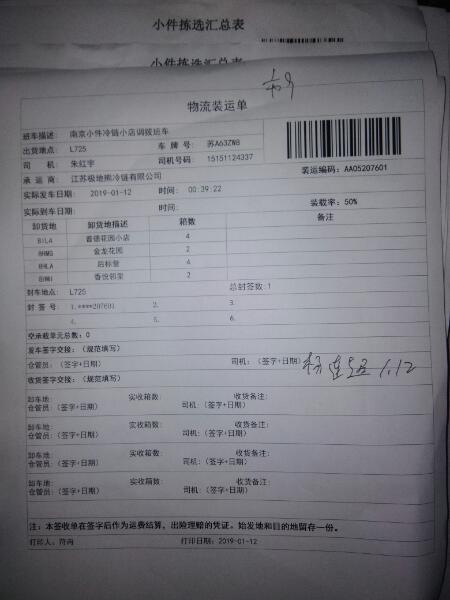 小件拣选汇总表
小件拣选汇总表
物流装运单
班车描述: 南京小件冷链小店调拨运车
出货地点: L725 车 牌 号: 苏A63ZW8
司 机: 朱红宇 司机号码: 15151124337
承 运 商: 江苏极地熊冷链有限公司 装运编码: AA05207601
实际发车日期: 2019-01-12 时间: 00:39:22
实际到车日期: 时间: 装载率: 50%
卸货地 卸货地描述 箱数 备注
BILA 普德花园小店 4
8HMG 金龙花园 2
8HLA 后标营 4
8HMH 香悦邻家 2
封车地点: L725 总封签数:1
封 签 号: 1.****207601 2. 3.
4. 5. 6.
空承载单元总数: 0
发车签字交接:（规范填写）
仓管员:（签字+日期） 司机:（签字+日期） 1.12
收货签字交接:（规范填写）
卸车地: 实收箱数: 收货备注:
仓管员:（签字+日期） 司机:（签字+日期）
卸车地: 实收箱数: 收货备注:
仓管员:（签字+日期） 司机:（签字+日期）
卸车地: 实收箱数: 收货备注:
仓管员:（签字+日期） 司机:（签字+日期）
卸车地: 实收箱数: 收货备注:
仓管员:（签字+日期） 司机:（签字+日期）
注: 本签收单在签字后作为运费结算、出险理赔的凭证。始发地和目的地留存一份。
打印人: 符冉 打印日期: 2019-01-12